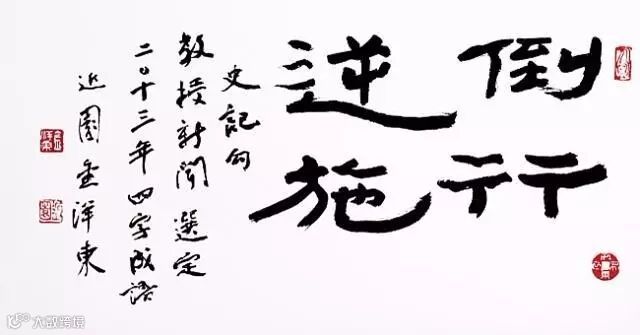 倒行
逆施
史記句
教授新聞選定
二〇十三年四字成語
近園金洋東
大数跨境